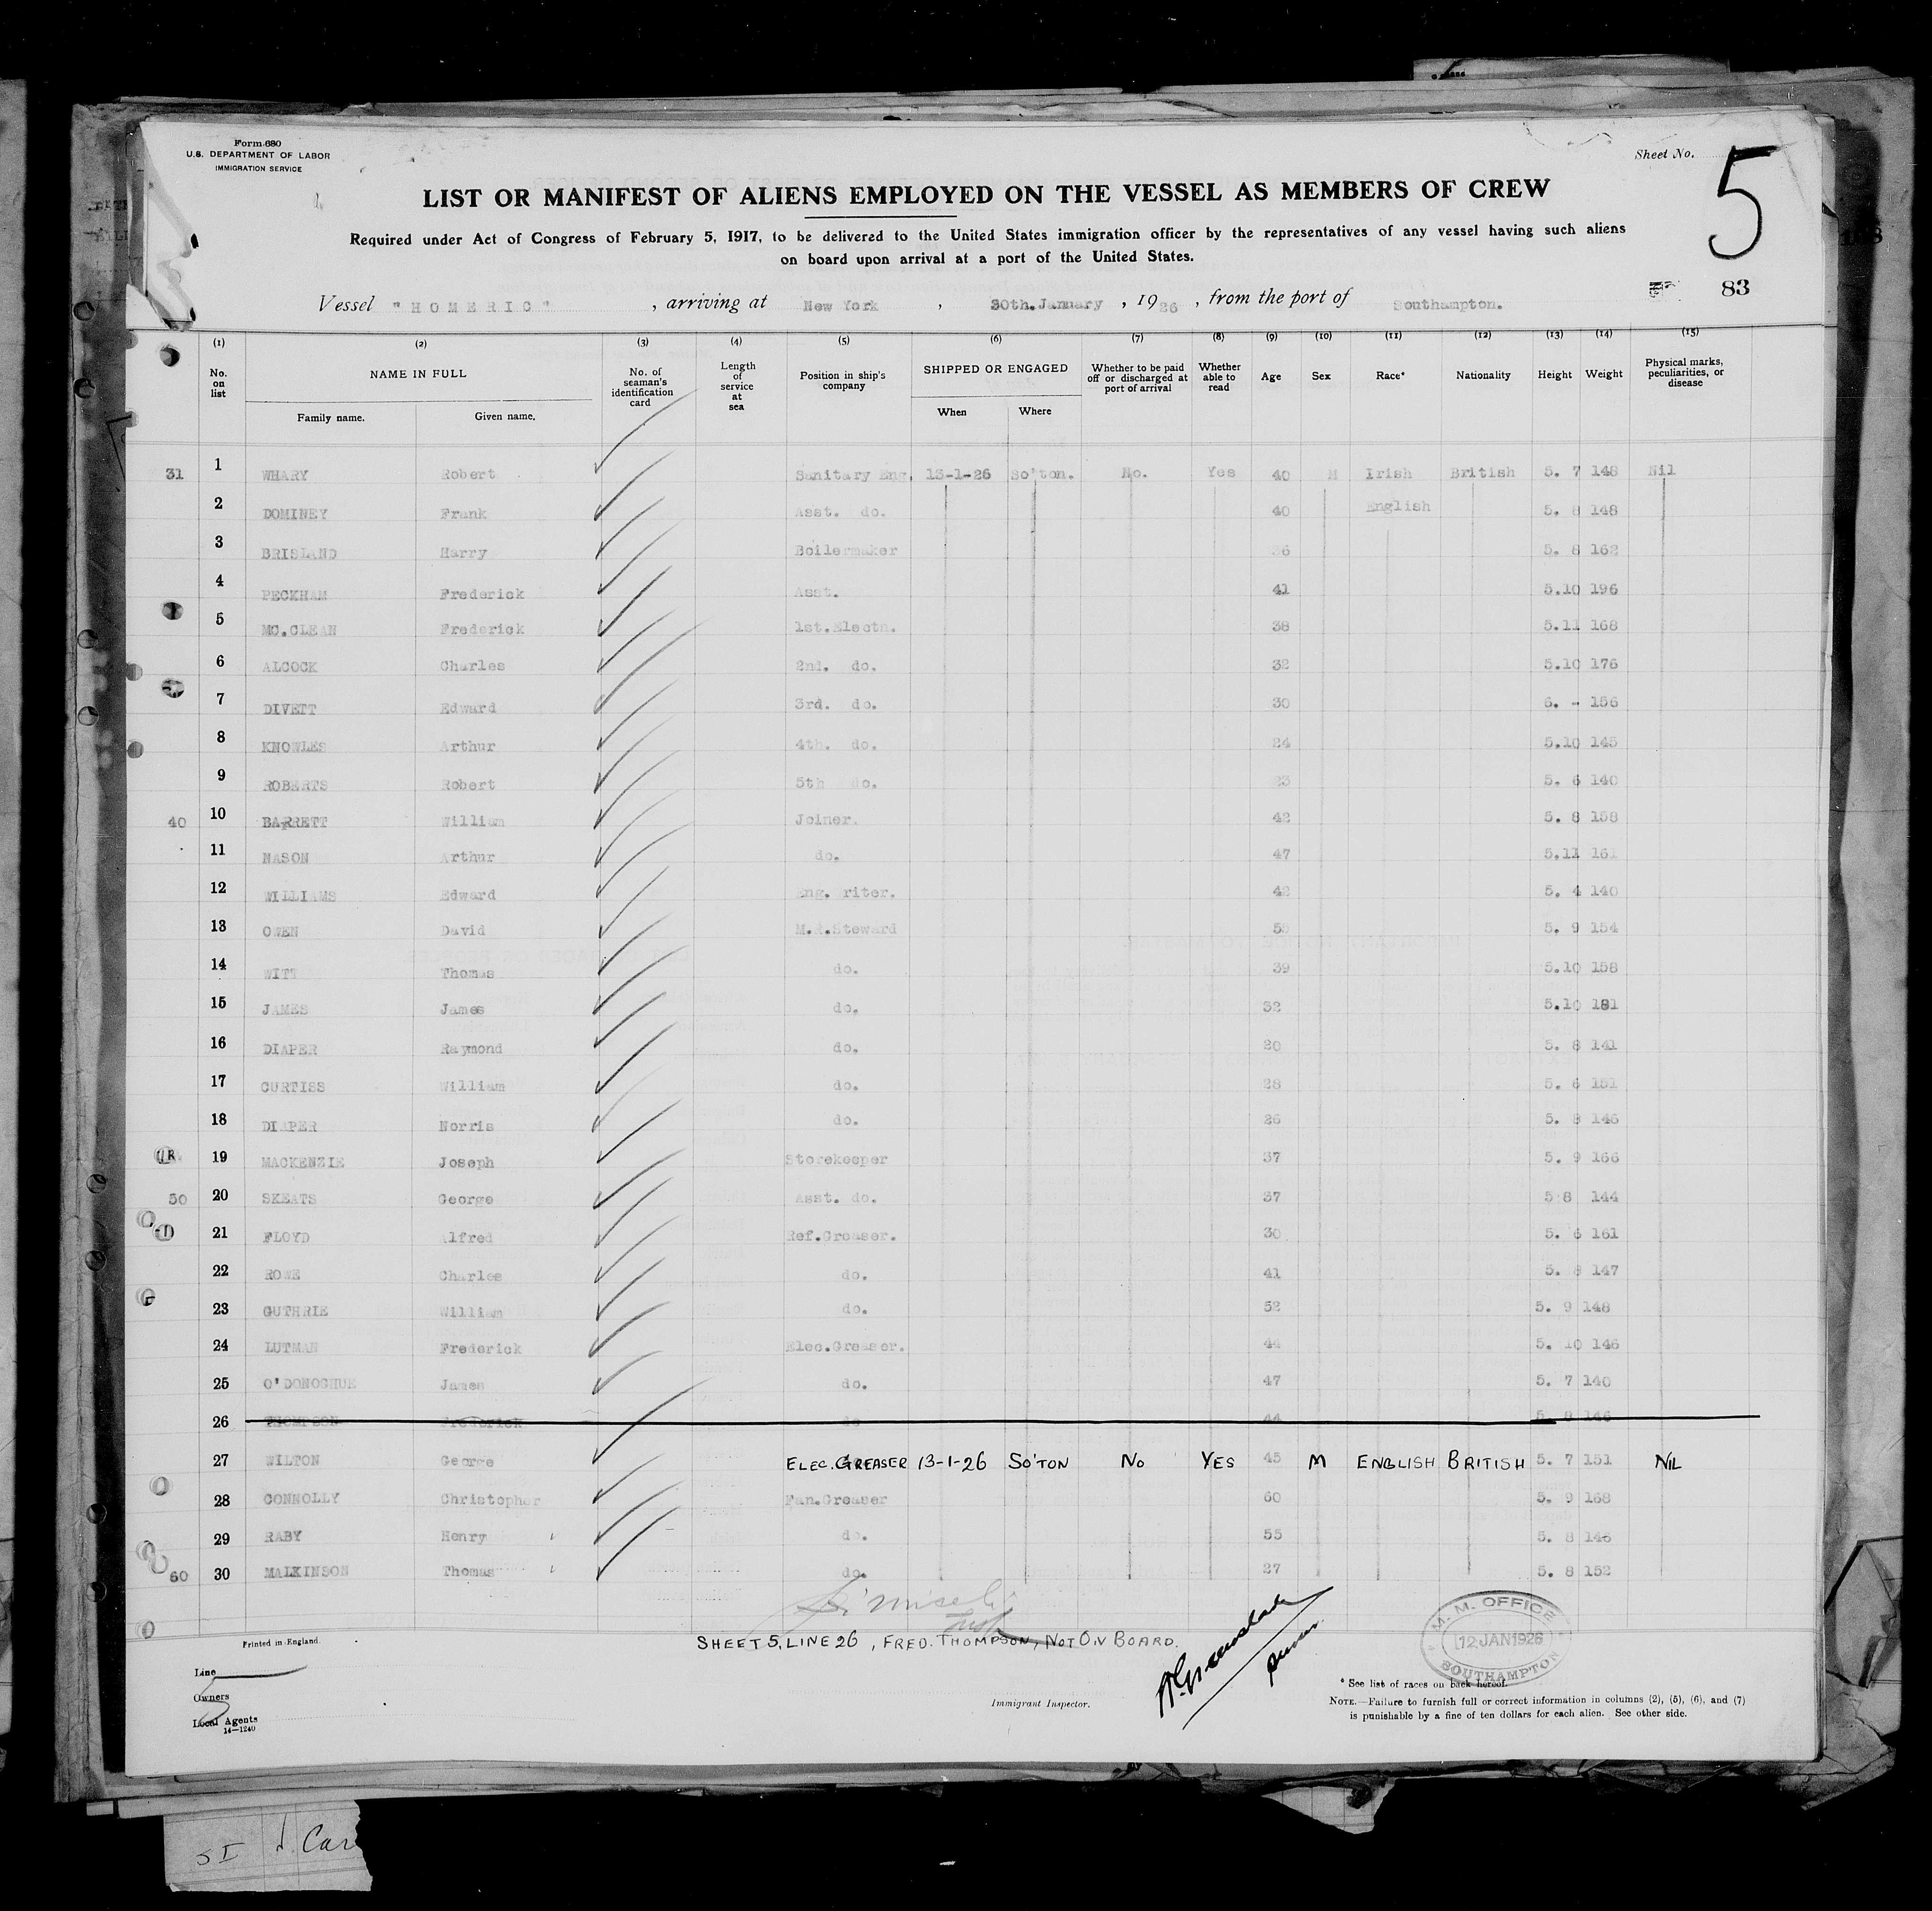 Form 680
U.S. DEPARTMENT OF LABOR
IMMIGRATION SERVICE
Sheet No. 5
LIST OR MANIFEST OF ALIENS EMPLOYED ON THE VESSEL AS MEMBERS OF CREW
Required under Act of Congress of February 5, 1917, to be delivered to the United States immigration officer by the representatives of any vessel having such aliens
on board upon arrival at a port of the United States.
83
Vessel "HOMERIC", arriving at New York, 30th.January, 1926, from the port of Southampton.
(1) (2) (3) (4) (5) (6) (7) (8) (9) (10) (11) (12) (13) (14) (15)
No. on list NAME IN FULL Family name. Given name. No. of seaman's identification card Length of service at sea Position in ship's company SHIPPED OR ENGAGED When Where Whether to be paid off or discharged at port of arrival Whether able to read Age Sex Race* Nationality Height Weight Physical marks, peculiarities, or disease
31 1 WHARY Robert Sanitary Eng. 13-1-26 So'ton. No. Yes 40 M Irish British 5. 7 148 Nil
2 DOMINEY Frank Asst. do. 40 English 5. 8 148
3 BRISLAND Harry Boilermaker 36 5. 8 162
4 PECKHAM Frederick Asst. 41 5.10 196
5 MC.CLEAN Frederick 1st.Electn. 38 5.11 168
6 ALCOCK Charles 2nd. do. 32 5.10 176
7 DIVETT Edward 3rd. do. 30 6. - 156
8 KNOWLES Arthur 4th. do. 24 5.10 145
9 ROBERTS Robert 5th do. 23 5. 6 140
40 10 BARRETT William Joiner. 42 5. 8 158
11 NASON Arthur do. 47 5.11 161
12 WILLIAMS Edward Eng. riter. 42 5. 4 140
13 OWEN David M.R.Steward 5. 9 154
14 WITT Thomas do. 39 5.10 158
15 JAMES James do. 32 5.10 181
16 DIAPER Raymond do. 20 5. 8 141
17 CURTISS William do. 28 5. 6 151
18 DIAPER Norris do. 26 5. 8 146
19 MACKENZIE Joseph Storekeeper 37 5. 9 166
50 20 SKEATS George Asst. do. 37 5 8 144
21 FLOYD Alfred Ref.Greaser. 30 5. 6 161
22 ROWE Charles do. 41 5. 8 147
23 GUTHRIE William do. 52 5. 9 148
24 LUTMAN Frederick Elec.Greaser. 44 5. 10 146
25 O'DONOGHUE James do. 47 5. 7 140
26 THOMPSON Frederick do 44 5. 8 146
27 WILTON George ELEC. GREASER 13-1-26 SO'TON NO YES 45 M ENGLISH BRITISH 5. 7 151 NIL
28 CONNOLLY Christopher Fan.Greaser 60 5. 9 168
29 RABY Henry do. 55 5. 8 146
60 30 MALKINSON Thomas do. 27 5. 8 152
SHEET 5, LINE 26, FRED. THOMPSON, NOT ON BOARD.
Printed in England.
M. M. OFFICE
12 JAN 1926
SOUTHAMPTON
Line
Owners
Local Agents
14—1240
Immigrant Inspector.
Purser
* See list of races on back hereof.
NOTE.—Failure to furnish full or correct information in columns (2), (5), (6), and (7)
is punishable by a fine of ten dollars for each alien. See other side.